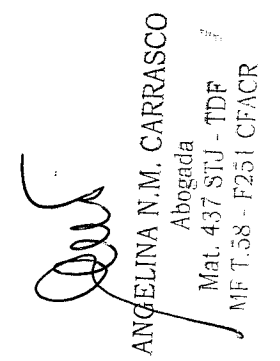 ANGELINA N.M. CARRASCO
Abogada
Mat. 437 STJ - TDF
MF T.58 - F251 CFACR